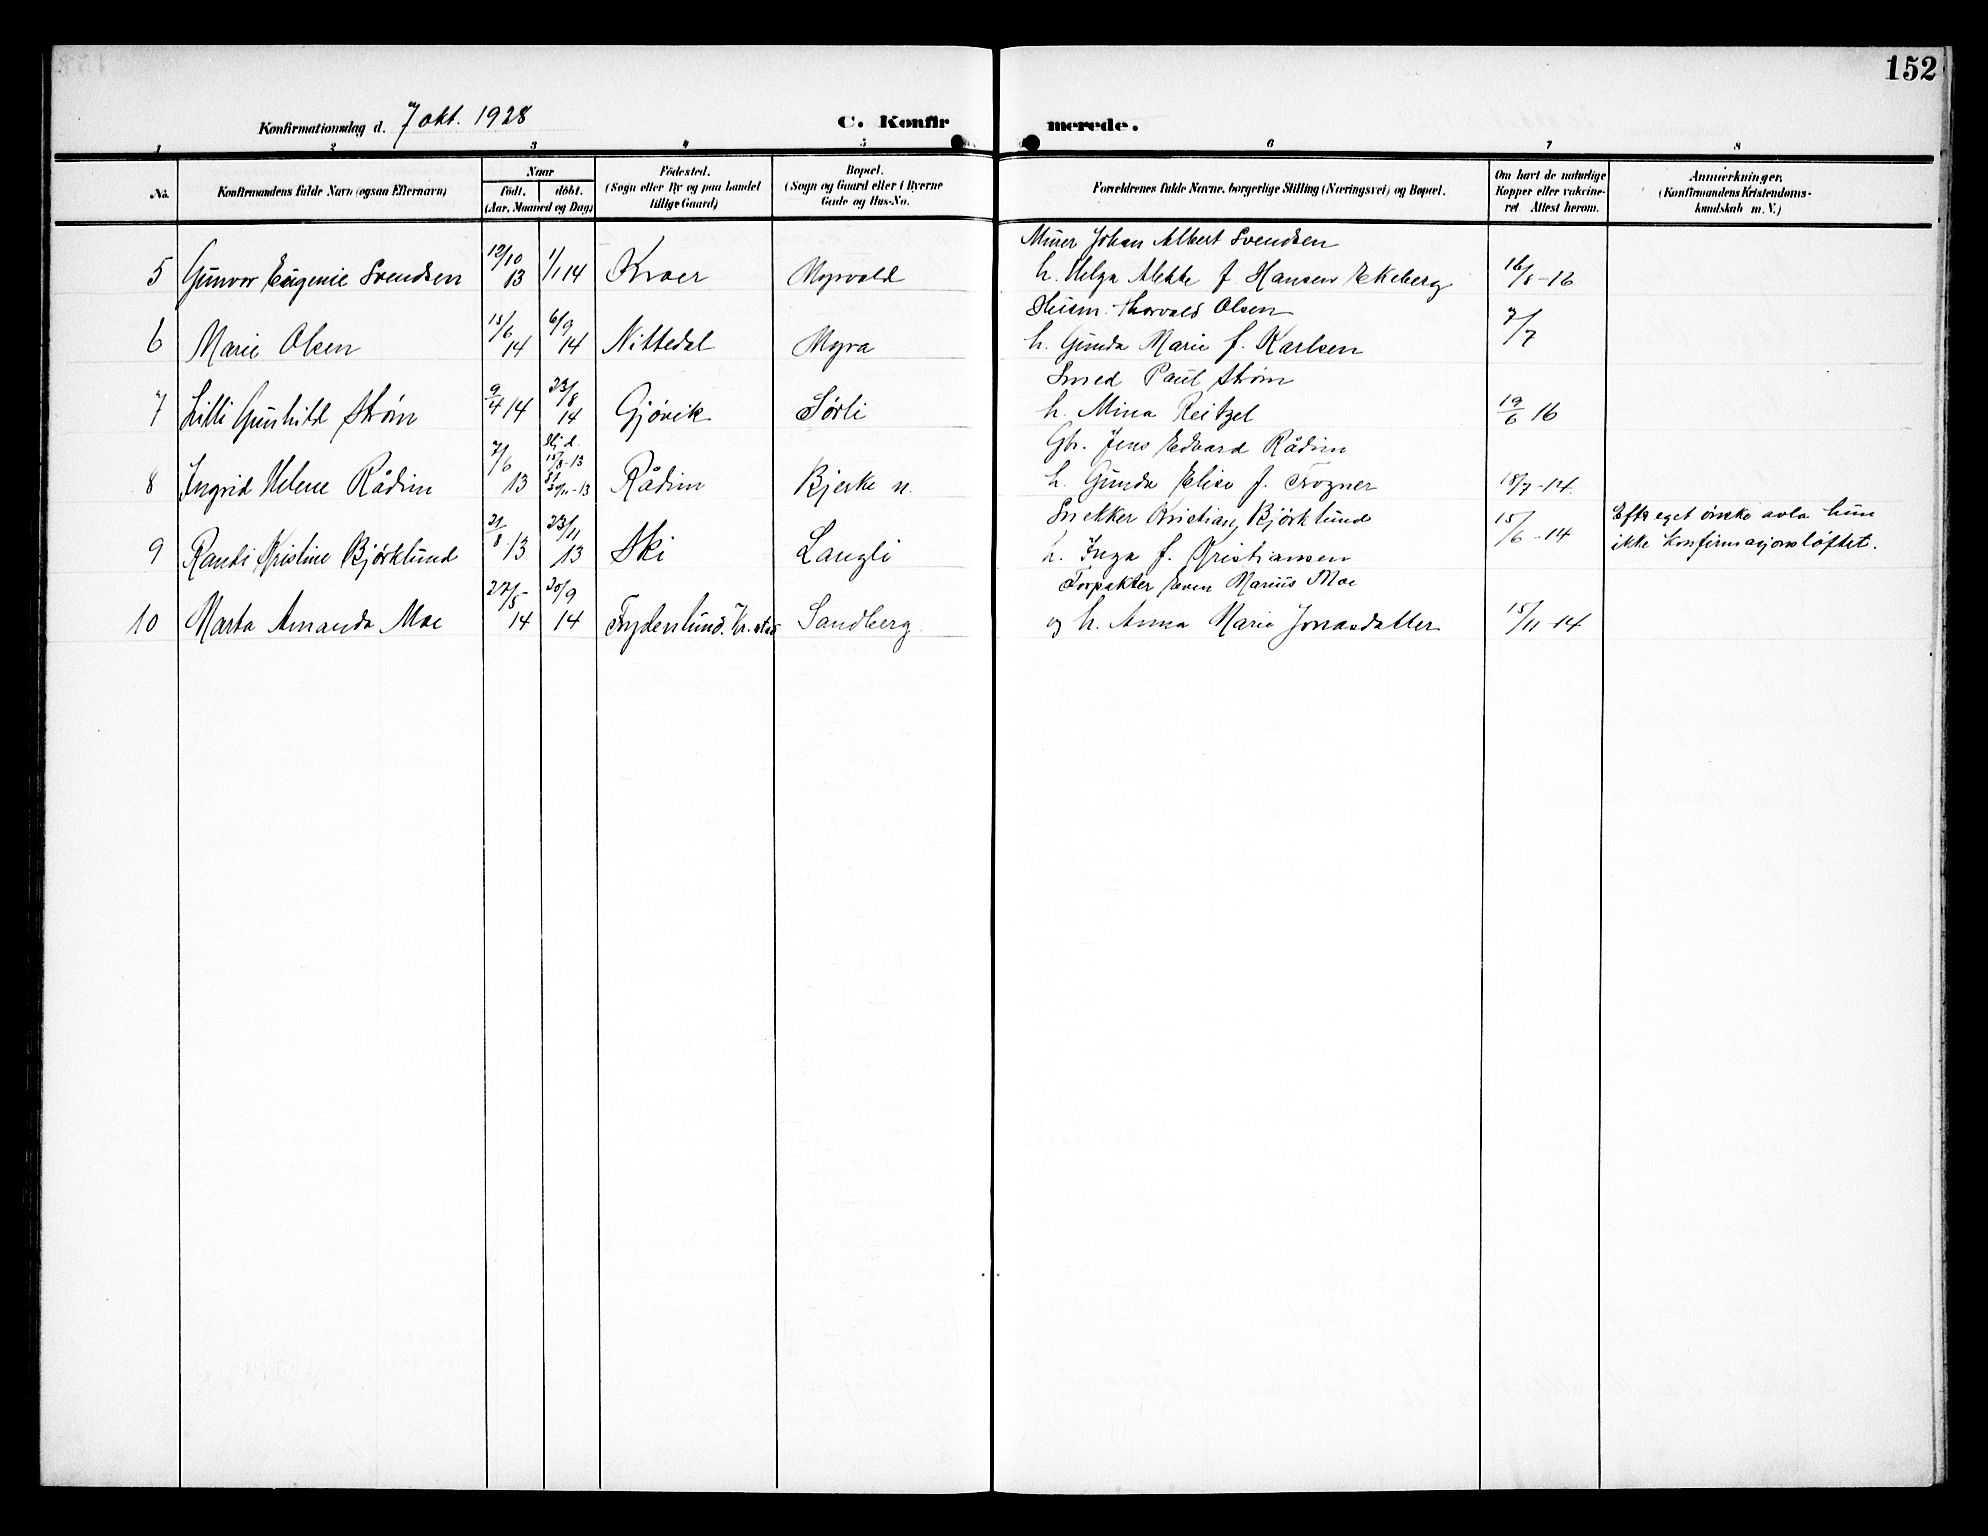 152
Konfirmationsdag d. 7 okt. 1928
C. Konfirmerede.
1 2 3 4 5 6 7 8
No.
Konfirmandens fulde Navn (ogsaa Efternavn)
Naar
født. døbt.
(Aar, Maaned og Dag)
Fødested.
(Sogn eller By og paa Landet
tillige Gaard)
Bopæl.
(Sogn og Gaard eller i Byerne
Gade og Hus-No.
Forældrenes fulde Navne, borgerlige Stilling (Næringsvei) og Bopæl.
Om havt de naturlige
Kopper eller vakcine-
ret Attest herom.
Anmærkninger,
(Konfirmandens Kristendoms-
kundskab m. V.)
Murer Johan Albert Svendsen
5 Gunvor Eugenie Svendsen 12/10 13 1/1 14 Kroer Myrvold h. Helga Alette f. Hansen Ekeberg 16/8-16
Husm. Thorvald Olsen
6 Marie Olsen 15/6 14 6/9 14 Nittedal Myra h. Gunda Marie f. Karlsen 7/7
Smed Paul Strøm
7 Lilli Gunhild Strøm 9/4 14 23/8 14 Gjøvik Sørli h. Mina Reitzel 19/6 16
Gbr. Jens Edvard Rådim
8 Ingrid Helene Rådim 7/6 13 Hj.d. 15/8-13 30/11-13 Rådim Bjerke n. h. Gunda Elise f. Frogner 18/7-14.
Snekker Kristian Bjørklund
9 Randi Kristine Bjørklund 21/8 13 23/11 13 Ski Langli h. Inga f. Kristiansen 15/6-14 Efter eget ønske avla hun
ikke konfirmasjonsløftet.
Forpakter Even Marius Moe
10 Marta Amanda Moe 27/5- 14 20/9 14 Frydenlund. Kr.stad Sandberg og h. Anna Marie Jonasdatter 15/11-14